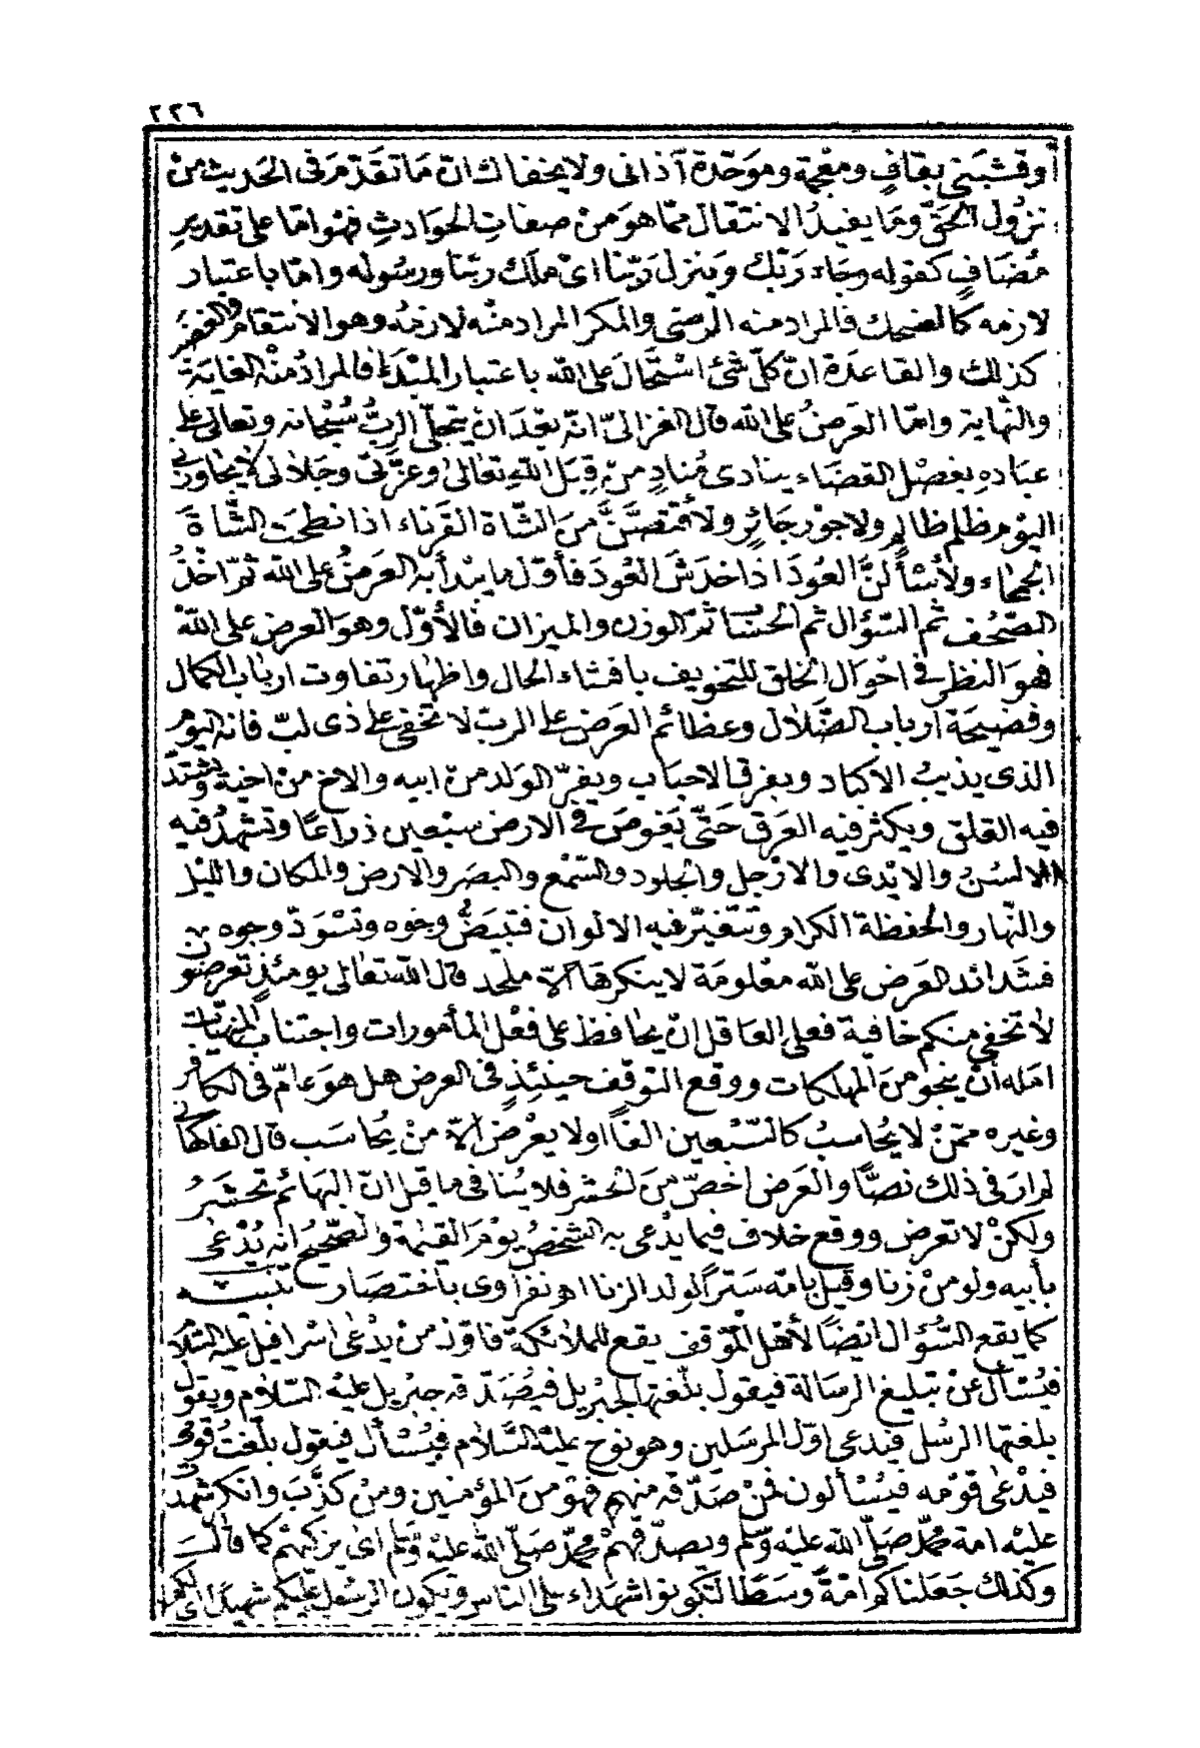 ٢٢٦
أو قشبني بقاف ومعجمة وموحدة آذانى ولا يخفاك انّ مَا تقدّم فى الحَديث منْ
نزول الحَقّ ومَا يفيدُ الانتقال ممّا هوَ منْ صفاتِ الحوَادثِ فهوَ امّا على تقديرِ
مُضَافٍ كقوله وجَاء رَبّك وَينزل رَبّنا اىْ ملَك ربّنا ورسُوله وامّا باعتبار
لازمه كالضحك فالمراد منه الرضى والمكر المراد منْه لازمُه وهو الانتقام والغضب
كذلك والقاعدَة انّ كلّ شئ اسْتحَالَ على الله باعتبار المبْدَاء فالمرادُ منْه الغايَة
والنّهاية وامّا العَرضُ على الله قال الغزالىّ انّه بعْدَ انْ يتجلّى الربُّ سُبْحانه وتعالى على
عبَادهِ بفصْل القضَاء ينادى مُنادٍ منْ قِبَل اللهِ تعالى وعزّتى وجَلالى لا يجاوزنى
اليَوْم ظلم ظالمٍ ولا جوْر جَائرٍ ولأقتصّنَّ منَ الشّاة القَرْناء اذا نطحَت الشّاةَ
الجمّاء ولأسْألنَّ العُودَ اذا خدَشَ العُودَ فأوّل ما يبْدأ به العَرضُ على الله ثمّ اخذُ
الصّحُف ثم السّؤال ثم الحسَاب ثمّ الوزن والميزان فالأوّل وهوَ العرض على اللهْ
فهوَ النظر فى احْوَال الخلق للتخويف بافشاء الحال واظهار تفاوت ارباب الكمال
وفضيحَة أرباب الضّلال وعظائم العَرض على الرب لا تخفى على ذى لبّ فانه اليوْم
الذى يذيبُ الاكباد ويفرق الاحبَاب ويفرّ الوَلد منْ ابيه والاخ منْ اخيه ويشتدّ
فيه القلق ويكثر فيه العَرق حَتّى يَغوصَ فى الارض سبْعين ذراعًا وتشهدُ فيه
الالسُنُ والايْدى والارْجل والجلود والسّمْع والبصَر والارض والمكان والليْل
والنّهار والحفظة الكرام وتتغيّر فيه الالوان فتبيَضُّ وجُوه وتسْوَدّ وجوه
فشدائد العَرض على الله معْلومَة لا ينكرهَا الاّ ملحد قال الله تعالى يومئذٍ تعرضون
لا تخفى منكم خافية فعلى العاقل انْ يحافظ على فعْل المأمورات واجتناب المنهيّات
امَله أنْ ينجوَ منَ المهلكات ووقع التوقف حينئذٍ فى العرض هل هوَ عامّ فى الكافر
وغيره ممّنْ لا يُحاسبُ كالسّبْعين الفًا اولا يعْرض الاّ منْ يُحاسَب قال الفاكهانى
لم ار فى ذلك نصًّا والعَرض اخصّ منَ الحشر فلا يُنافى ما قيل انّ البهائم تحشَرُ
ولكنْ لا تعرض ووقع خلاف فيما يدْعى به الشخصُ يوْمَ القيٰمة والصّحيحُ انّه يُدْعى
بأبيه ولو منْ زنا وقيل بامّه سَترًا لولد الزنا اهـ نفراوى باختصار تنبيه
كما يقع السّؤال ايْضًا لأهل المَوْقف يقع للملائكة فاوّل منْ يدْعى اسْرافيل عليْه السّلام
فيُسْأل عنْ تبليغ الرسالة فيقول بلّغتها لجبريل فيُصَدّقه جبريل عليْه السّلام ويقول
بلغتها الرسُل فيدعى اوّل المرسَلين وهو نوح عليْه السَّلام فيُسْأل فيقول بلّغتُ قوْمى
فيدْعى قوْمه فيُسْألون فمنْ صَدّقه منهم فهوَ منَ المؤمنين ومنْ كذّبَ وانكر شهدَت
عليْه امّة محمّد صَلّى الله عليْه وَسلم ويصدّقهمْ محمّد صَلّى الله عليْه وَسلم اىْ يزكيهمْ كما قال
وكذلك جَعَلناكم امّةً وسَطًا لتكونوا شهدَاء على الناس ويكون الرسُول عليْكم شهيدًا اى